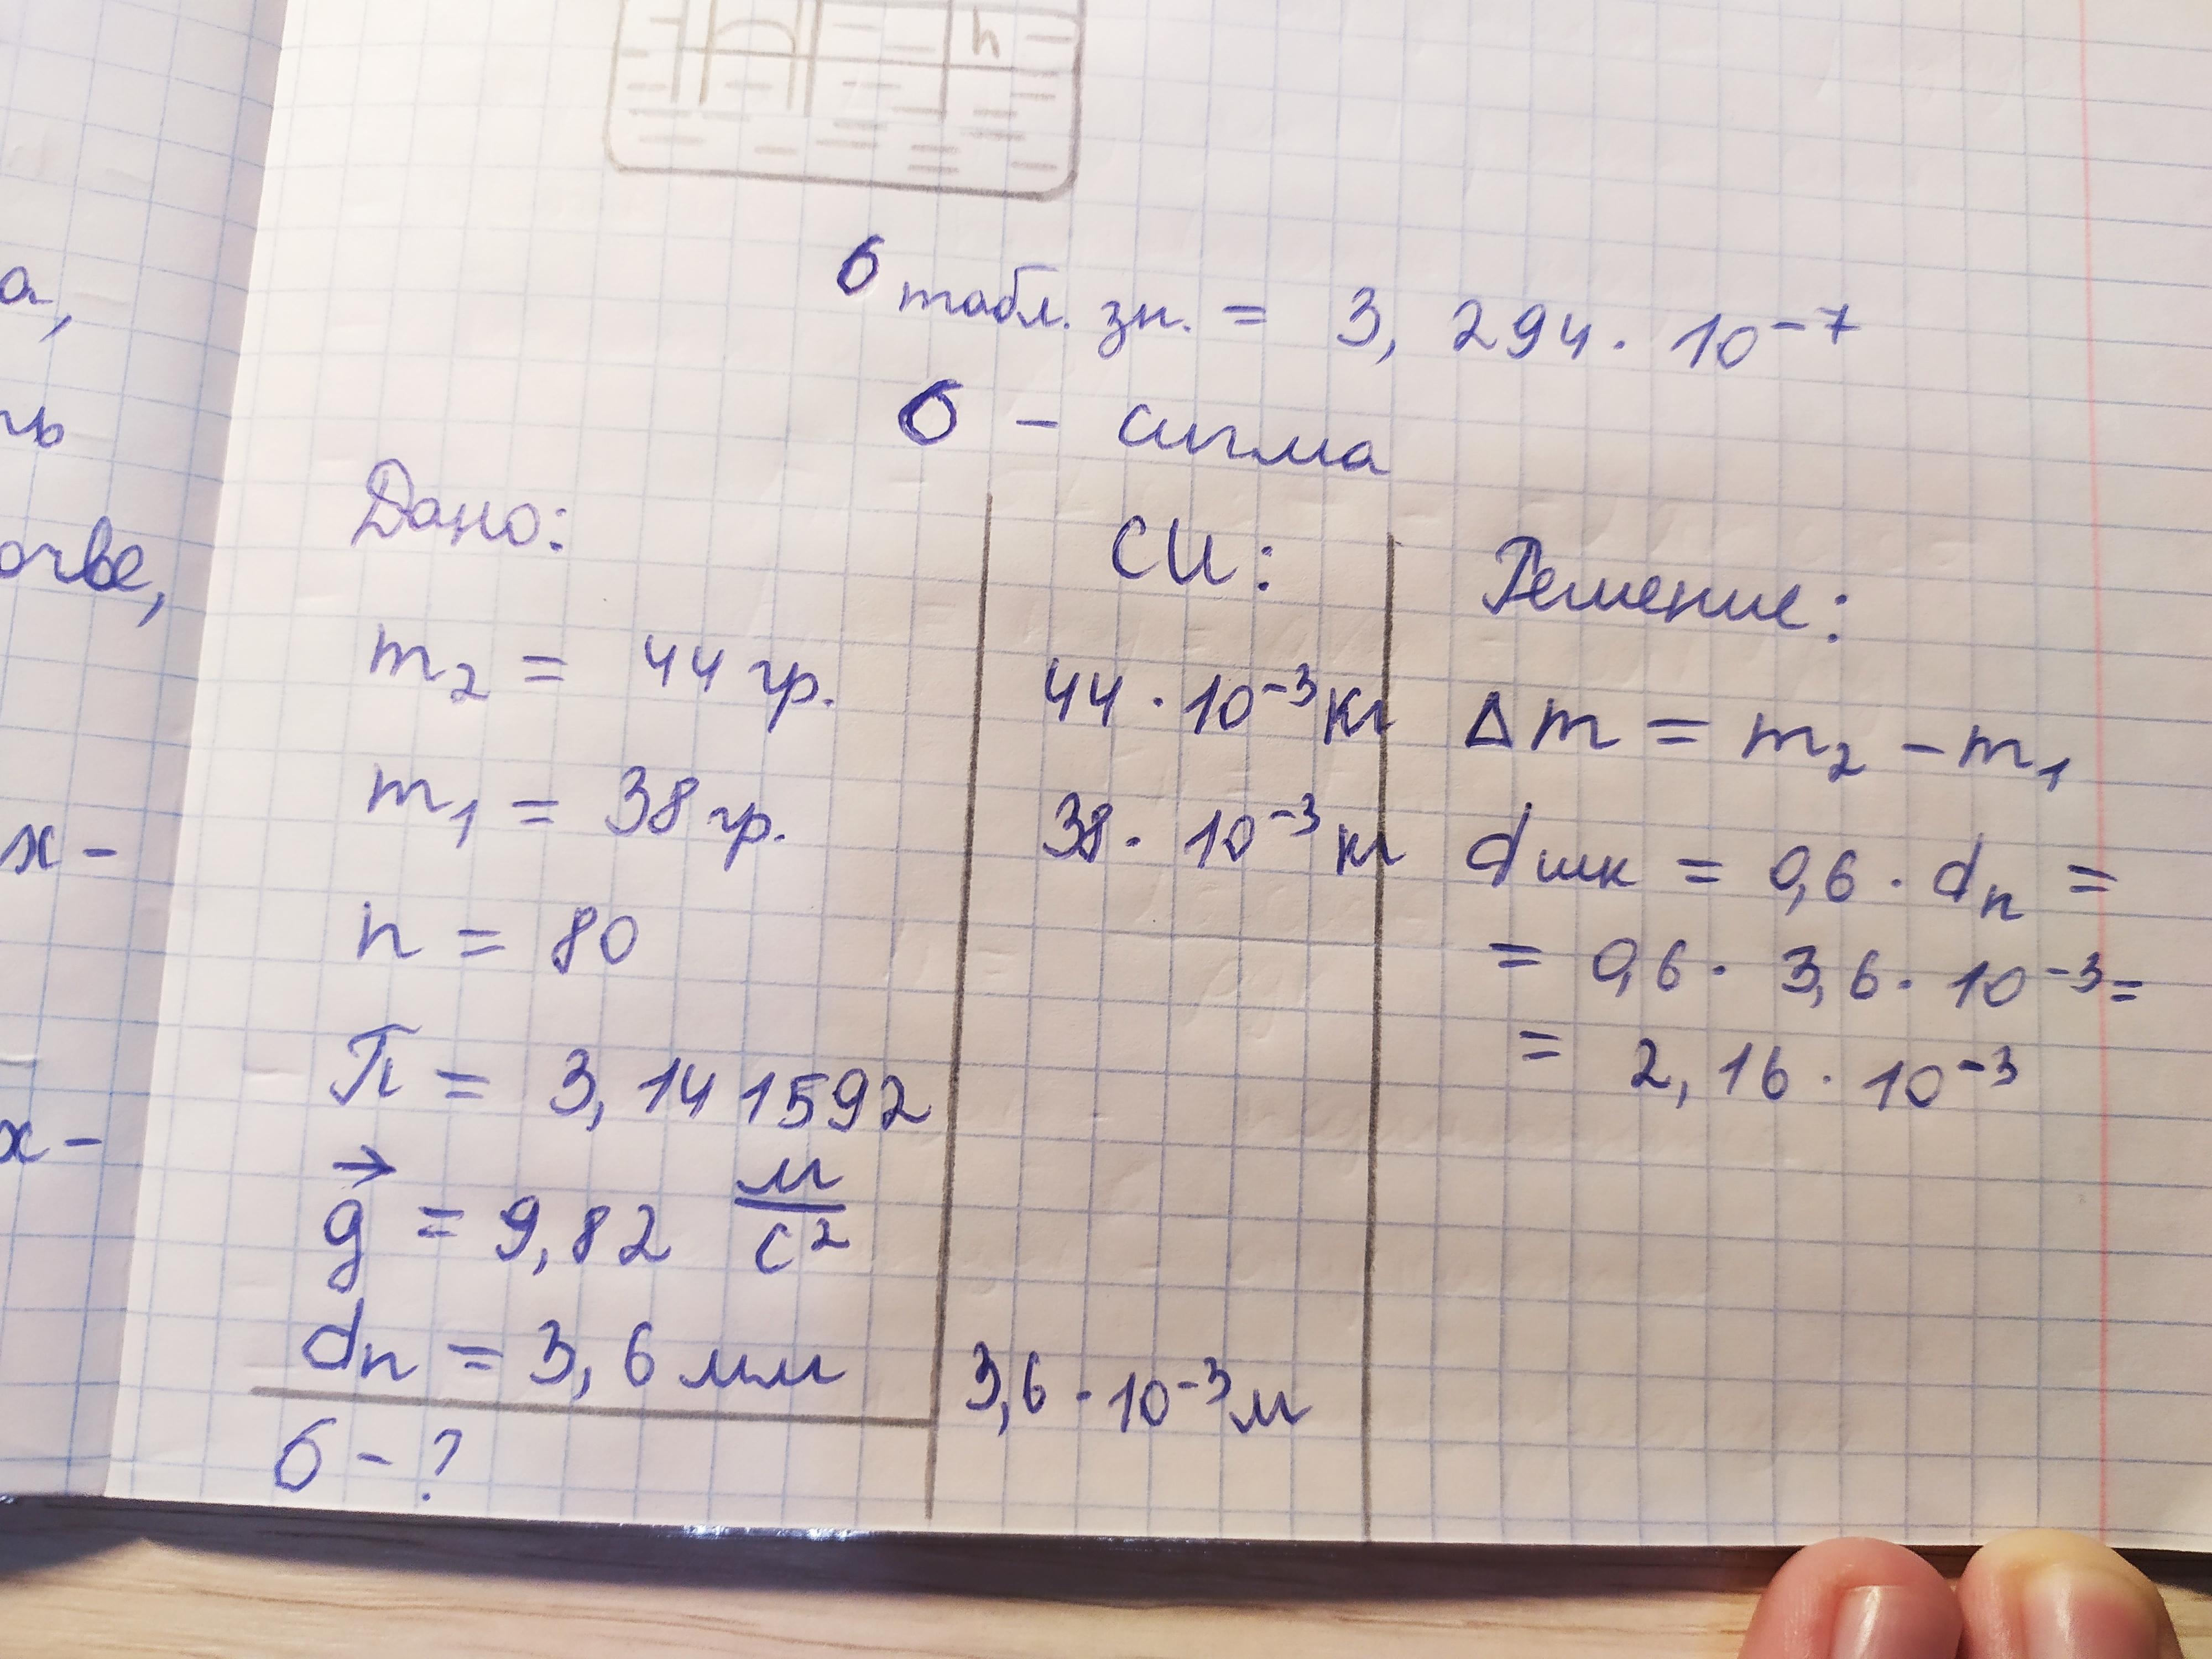 h
σ табл. зн. = 3, 294 · 10⁻⁷
σ – сигма
Дано:
m₂ = 44 гр.
m₁ = 38 гр.
n = 80
π = 3, 141592
g⃗ = 9,82 м/с²
dₙ = 3,6 мм
σ – ?
СИ:
44 · 10⁻³ кг
38 · 10⁻³ кг
3,6 · 10⁻³ м
Решение:
Δm = m₂ – m₁
d шк = 0,6 · dₙ =
= 0,6 · 3,6 · 10⁻³ =
= 2, 16 · 10⁻³
а,
ть
очве,
х –
х –